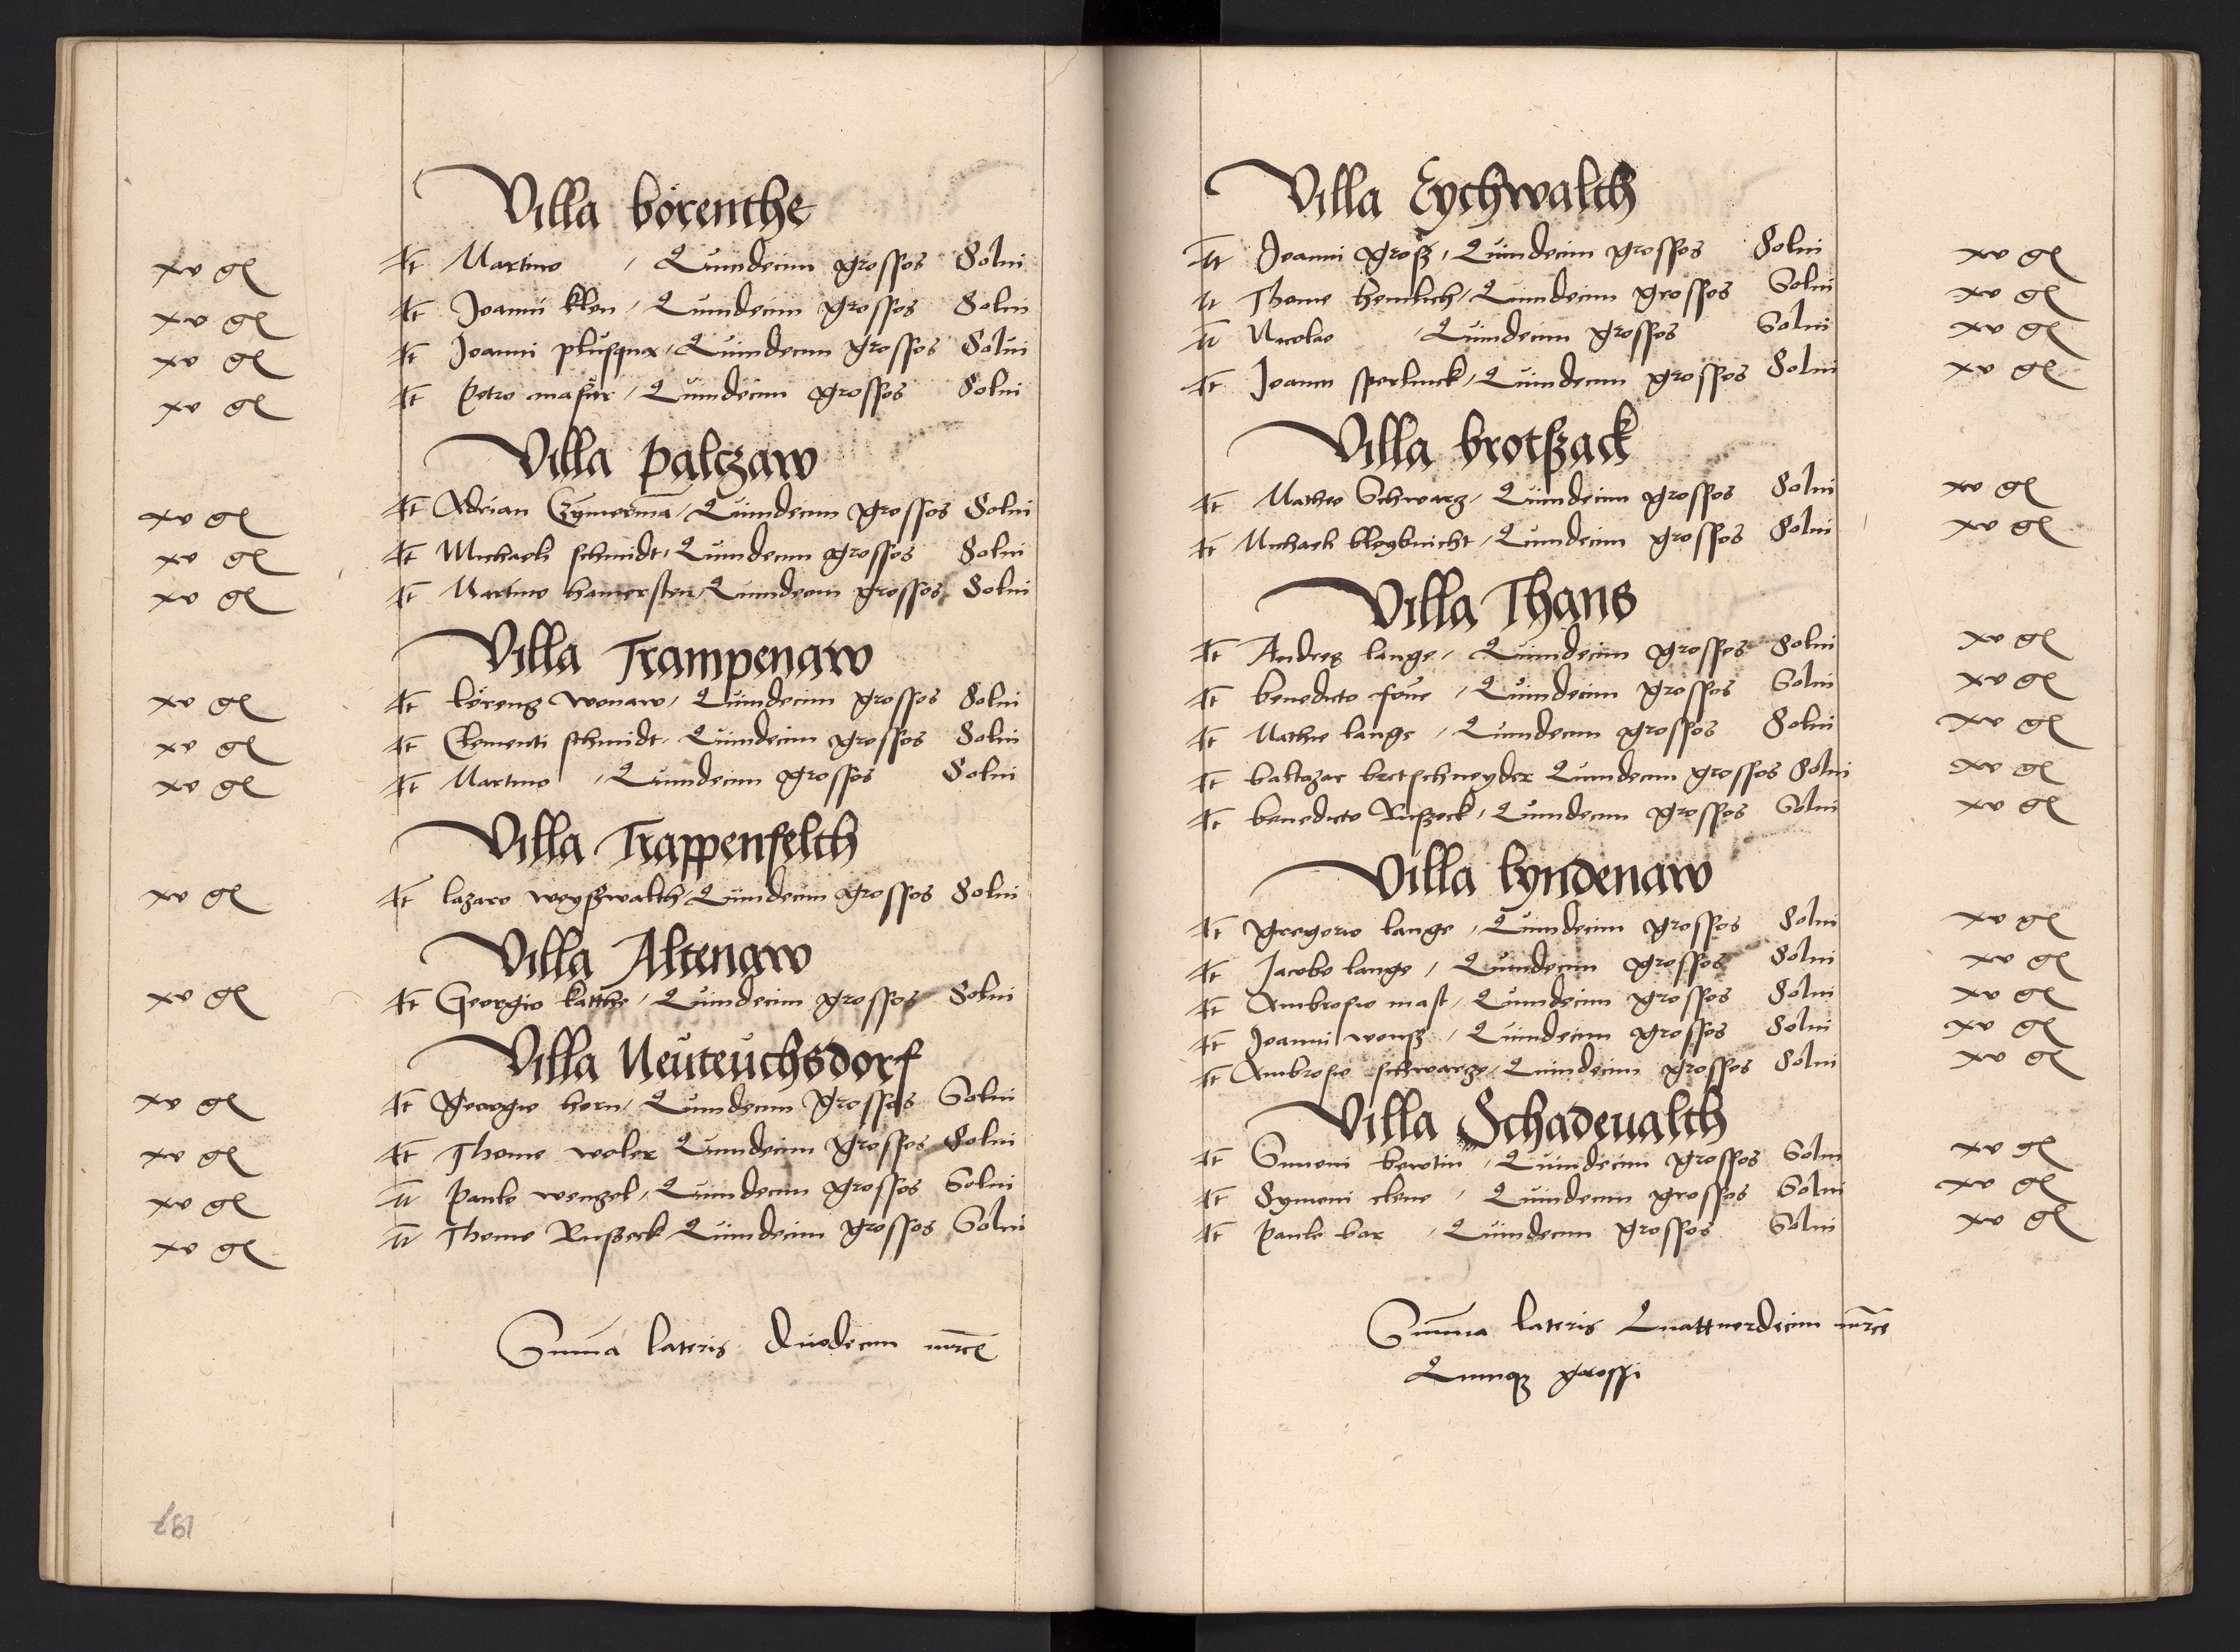 Villa börenthe
It Martino / Quindecim grossos Solui xv gl
It Joanni klen / Quindecim grossos Solui xv gl
It Joanni plusqua / Quindecim grossos Solui xv gl
It Petro masur / Quindecim grossos Solui xv gl
Villa palczaw
It Adrian Czymerma / Quindecim grossos Solui xv gl
It Michaeli schmidt / Quindecim grossos Solui xv gl
It Martino hamersten / Quindecim grossos Solui xv gl
Villa Trampenaw
It lörenz wonaw / Quindecim grossos Solui xv gl
It Clementi schmidt / Quindecim grossos Solui xv gl
It Martino / Quindecim grossos Solui xv gl
Villa Trappenfelth
It lazaro weyßwalth / Quindecim grossos Solui xv gl
Villa Altenaw
It Georgio katthe / Quindecim grossos Solui xv gl
Villa Neuteuchsdorf
It Georgio horn / Quindecim grossos Solui xv gl
It Thome woler Quindecim grossos Solui xv gl
It Paulo wenzel / Quindecim grossos Solui xv gl
It Thome Rußeck Quindecim grossos Solui xv gl
Summa lateris duodecim mrce
197
Villa Eychwalth
It Joanni groß / Quindecim grossos Solui xv gl
It Thome hemlich / Quindecim grossos Solui xv gl
It Nicolao / Quindecim grossos Solui xv gl
It Joanni sperlinck / Quindecim grossos Solui xv gl
Villa brotßack
It Matheo Schwarz / Quindecim grossos Solui xv gl
It Michaeli bleyknicht / Quindecim grossos Solui xv gl
Villa Thans
It Andres lange / Quindecim grossos Solui xv gl
It benedicto / Quindecim grossos Solui xv gl
It Matheo lange / Quindecim grossos Solui xv gl
It baltazar brotschneyder Quindecim grossos Solui xv gl
It benedicto Rußeck / Quindecim grossos Solui xv gl
Villa lyndenaw
It gregorio lange / Quindecim grossos Solui xv gl
It Jacobo lange / Quindecim grossos Solui xv gl
It Ambrosio mast / Quindecim grossos Solui xv gl
It Joanni / Quindecim grossos Solui xv gl
It Ambrosio schwarze / Quindecim grossos Solui xv gl
Villa Schadeualth
It Simoni / Quindecim grossos Solui xv gl
It Symoni clene / Quindecim grossos Solui xv gl
It Paulo bar / Quindecim grossos Solui xv gl
Summa lateris Quattuordecim mrce
Quinqz grossi